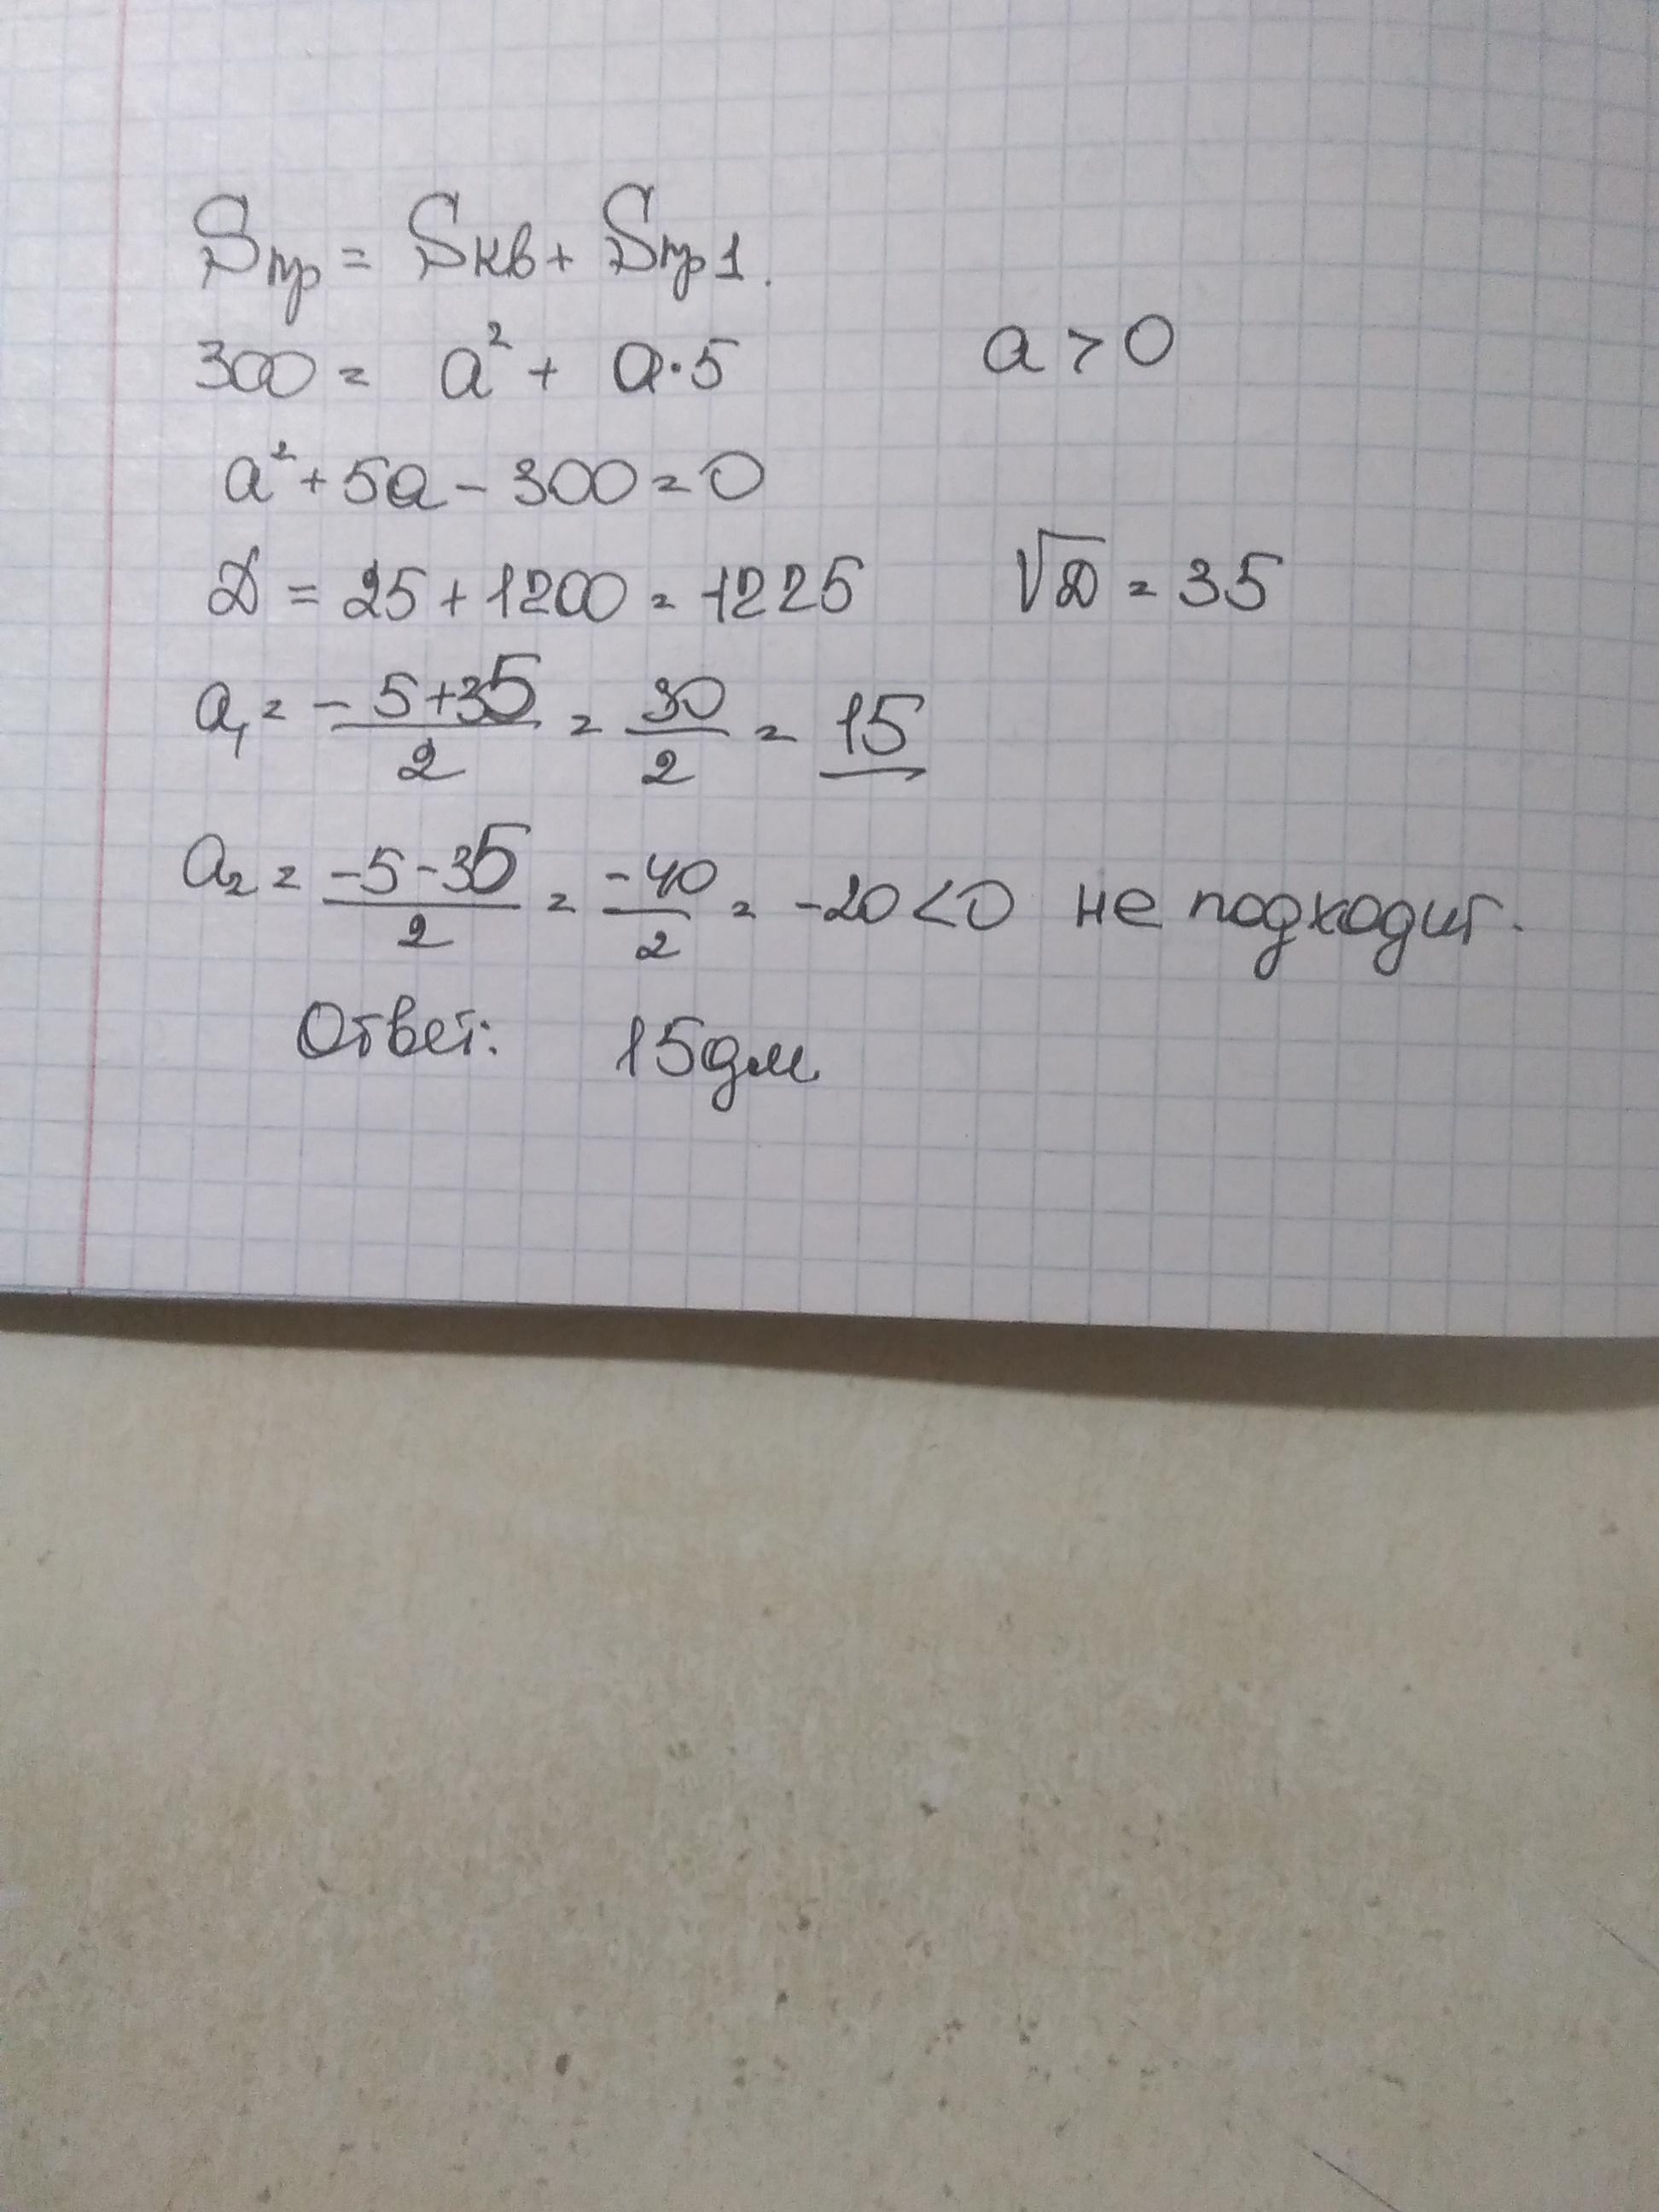 Sпр = Sкв + Sпр1.
300 = a² + a·5 a > 0
a² + 5a - 300 = 0
D = 25 + 1200 = 1225 √D = 35
a₁ = (-5+35)/2 = 30/2 = 15
a₂ = (-5-35)/2 = -40/2 = -20 < 0 не подходит.
Ответ: 15дм